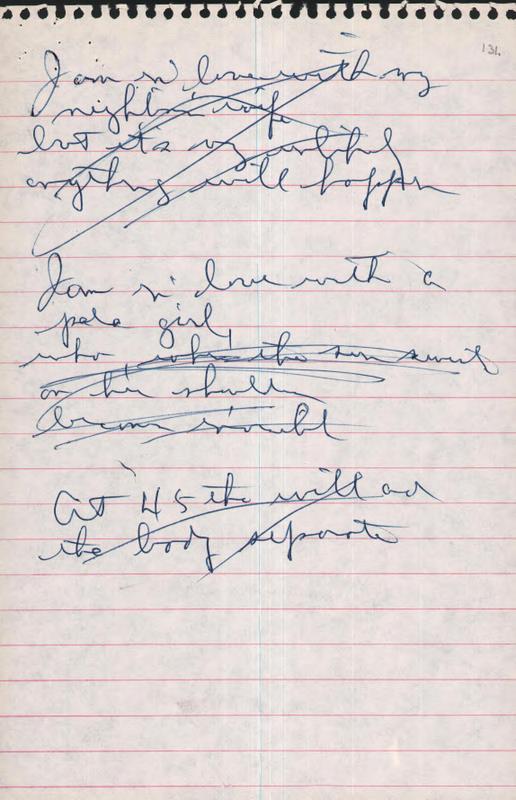 131.
I am in love with my
night wife
but it's my
anything will happen
I am in love with a
pale girl,
who, when the sun
on her shoulders
becomes
At 45 the will and
the body separate